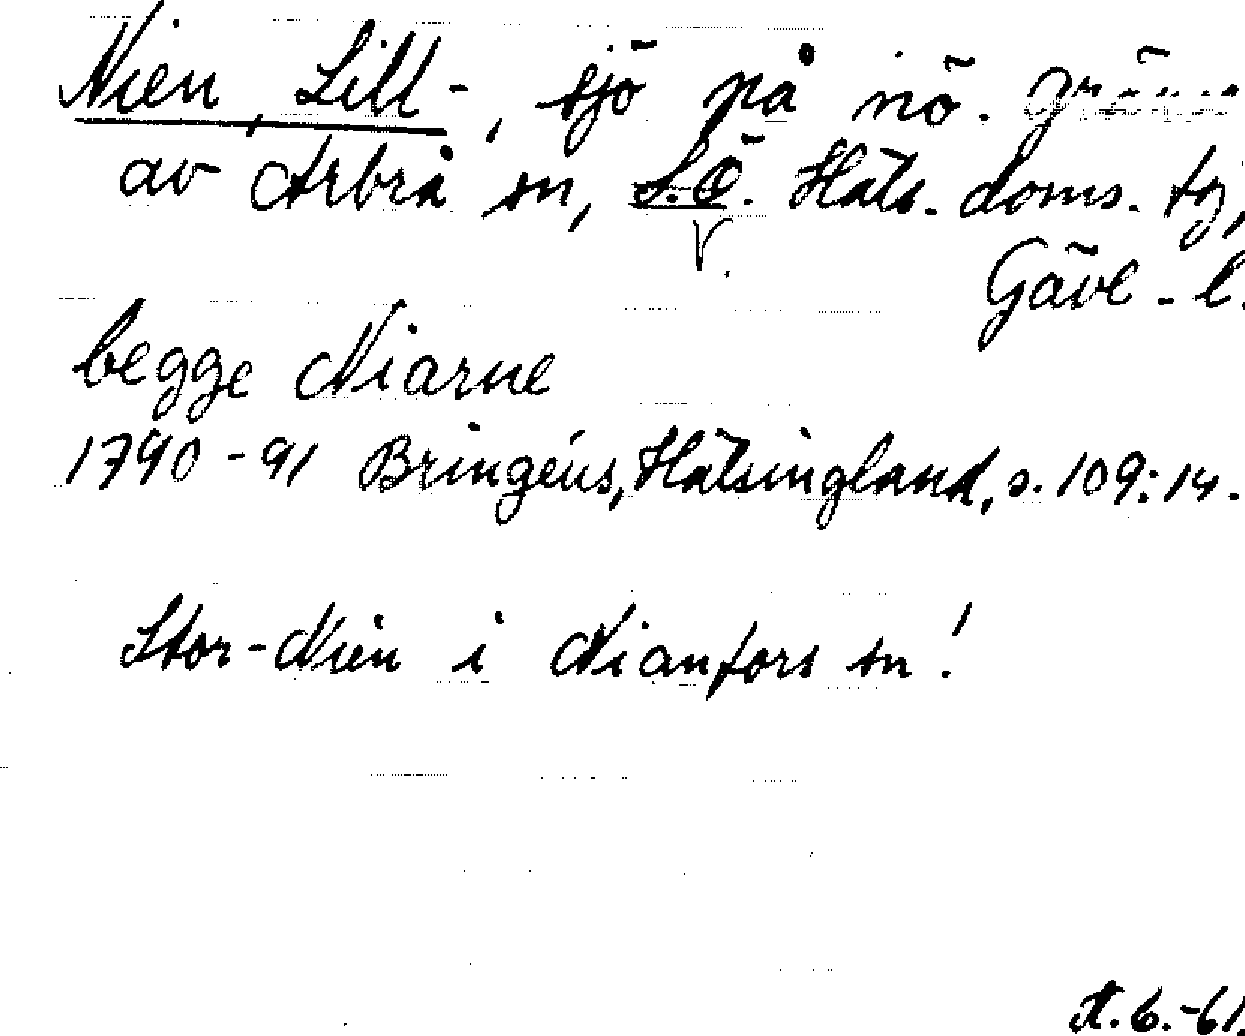 Nien, Lill-, sjö på nö. gräns
av Arbrå sn, S.Ö. Häls. doms. tg,
V.
Gävl-l.
begge Niarne
1790-91 Bringéus, Hälsingland, s. 109:14.
Stor-Nien i Nianfors sn!
6.-61.